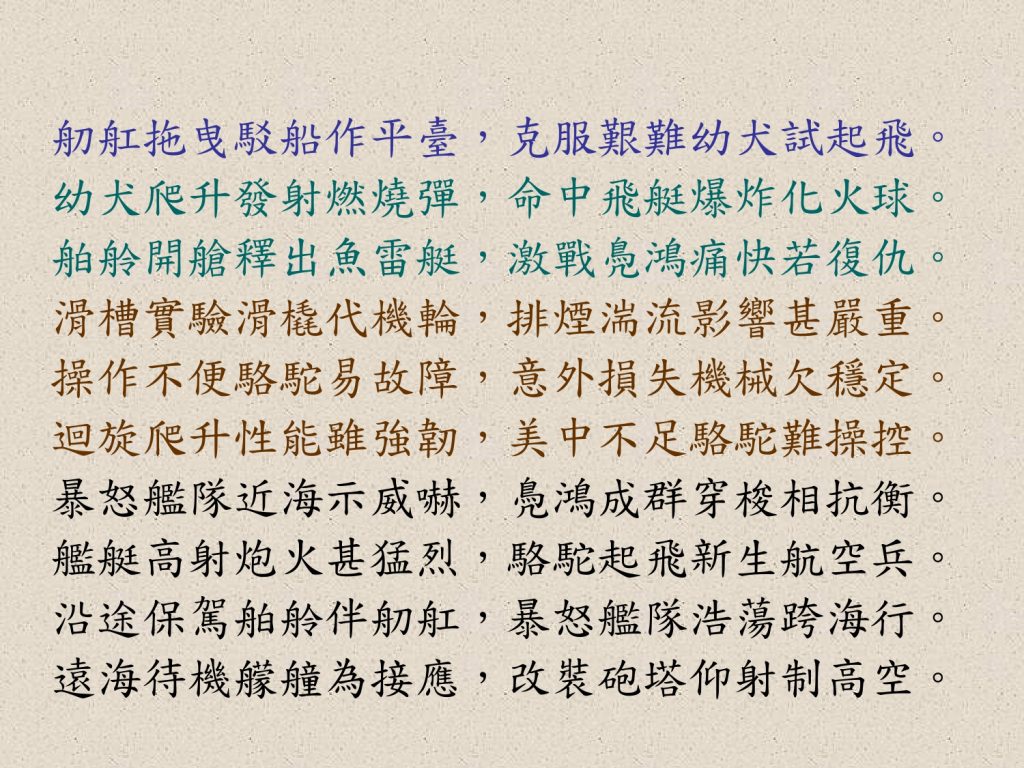 舠舡拖曳駁船作平臺，克服艱難幼犬試起飛。
幼犬爬升發射燃燒彈，命中飛艇爆炸化火球。
舶舲開艙釋出魚雷艇，激戰鳧鴻痛快若復仇。
滑槽實驗滑橇代機輪，排煙湍流影響甚嚴重。
操作不便駱駝易故障，意外損失機械欠穩定。
迴旋爬升性能雖強韌，美中不足駱駝難操控。
暴怒艦隊近海示威嚇，鳧鴻成群穿梭相抗衡。
艦艇高射炮火甚猛烈，駱駝起飛新生航空兵。
沿途保駕舶舲伴舠舡，暴怒艦隊浩蕩跨海行。
遠海待機艨艟為接應，改裝砲塔仰射制高空。